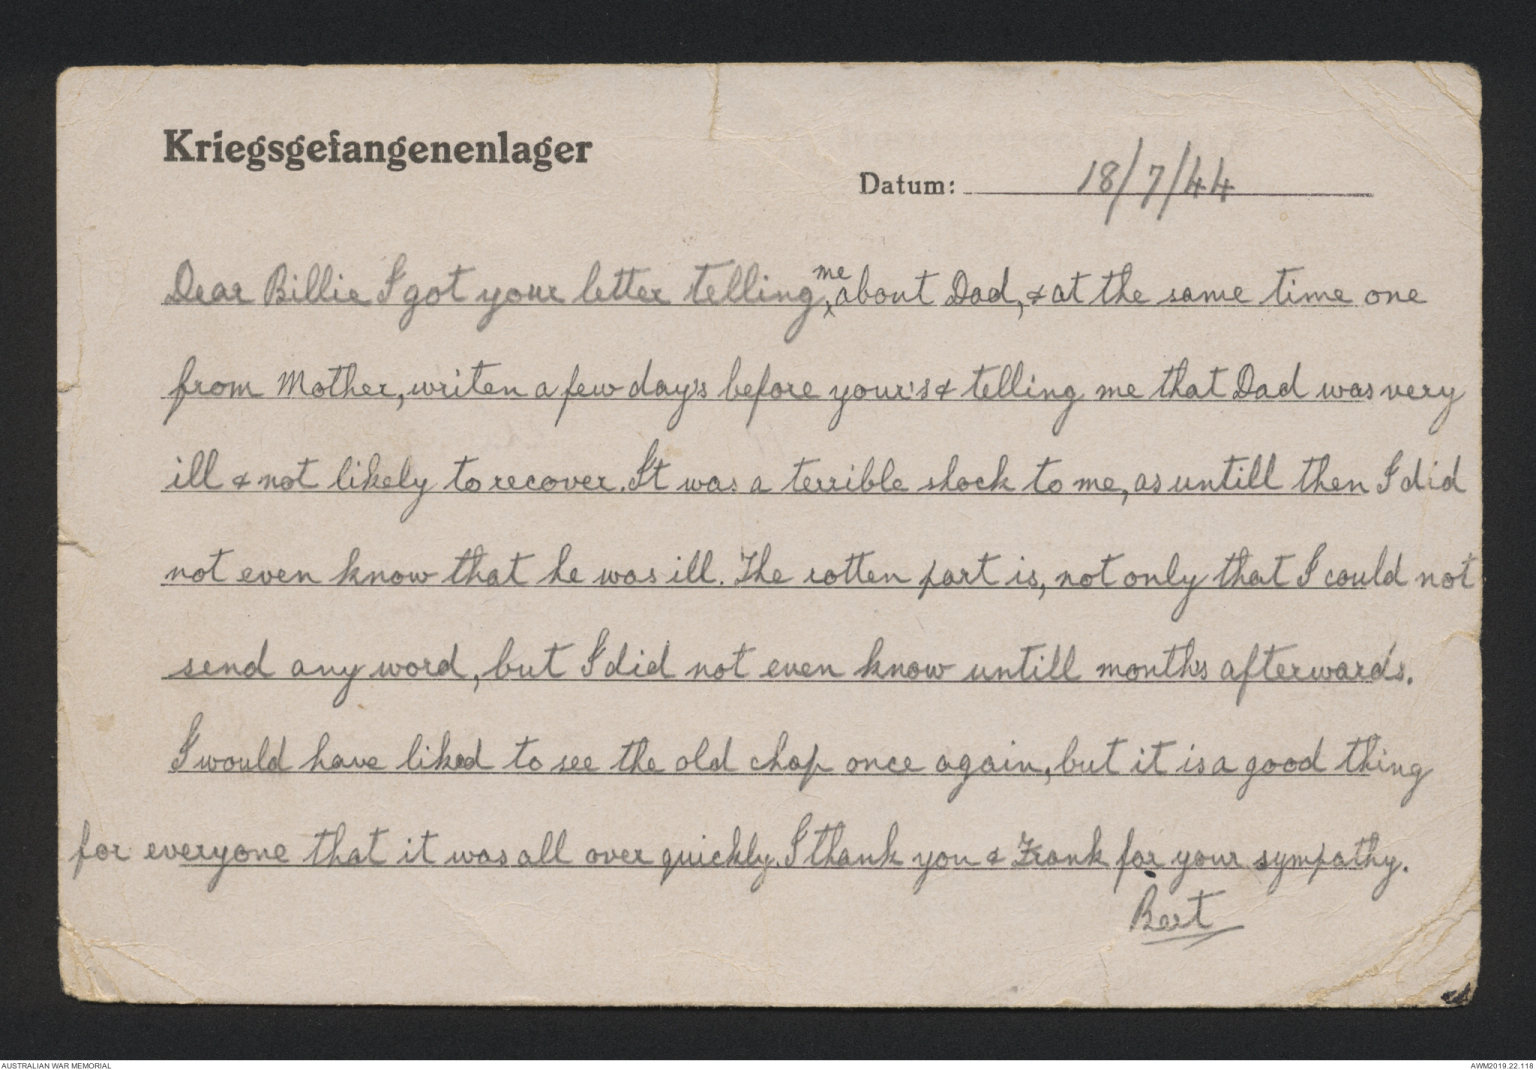 Kriegsgefangenenlager
Datum: 18/7/44
Dear Billie I got your letter telling me about Dad, & at the same time one
from Mother, writen a few day's before your's & telling me that Dad was very
ill & not likely to recover. It was a terrible shock to me, as untill then I did
not even know that he was ill. The rotten part is, not only that I could not
send any word, but I did not even know untill month's afterward's.
I would have liked to see the old chap once again, but it is a good thing
for everyone that it was all over quickly. I thank you & Frank for your sympathy.
Bert
AUSTRALIAN WAR MEMORIAL
AWM2019.22.118